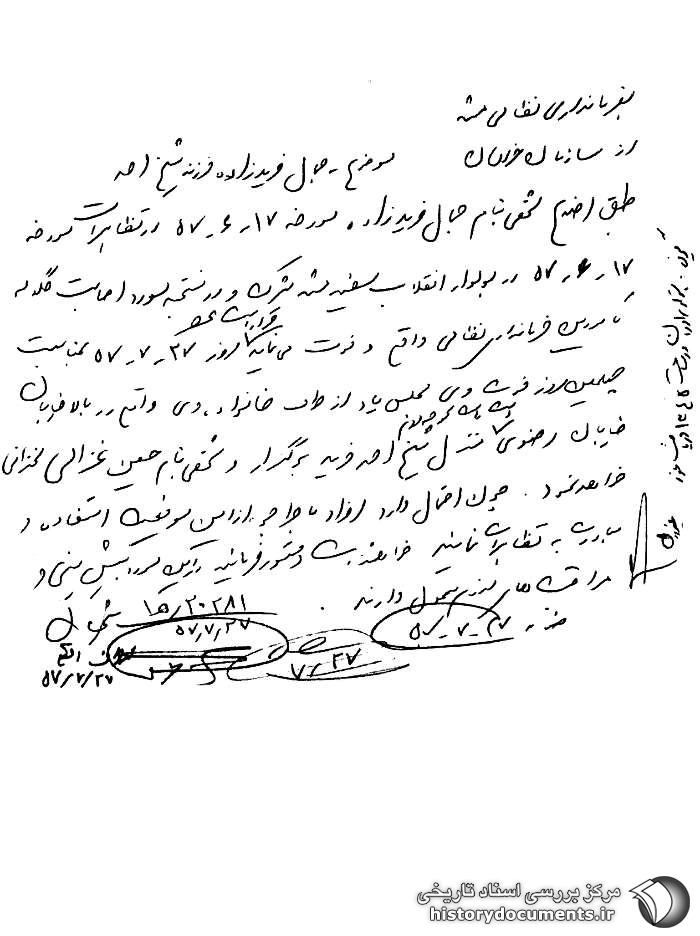 بفرمانداری نظامی مشهد
از سازمان خراسان موضوع - جمال فریدزاده فرزند شیخ احمد
طبق اطلاع شخصی بنام جمال فریدزاده مورخه ۱۷-۶-۵۷ در تظاهرات مورخه
۱۷-۶-۵۷ در بولوار انقلاب سفید مشهد شرکت و در نتیجه مورد اصابت گلوله
مامورین فرمانداری نظامی واقع و فوت می‌نماید قرار است عصر روز ۲۷-۷-۵۷ بمناسبت
چهلمین روز فوت وی مجلس یاد از طرف خانواده وی واقع در بالا خیابان
خیابان رضوی منزل شیخ احمد فرید برگزار و شخصی بنام حسین غزالی سخنرانی
خواهد نمود. چون احتمال دارد افراد ماجراجو از این موقعیت استفاده و
مبادرت به تظاهرات نمایند خواهشمند است دستور فرمائید در این مورد پیش بینی و
مراقبت‌های لازم معمول دارند.
۲۷-۷-۵۷
۱۵/۲۰۲۸۱
۵۷٫۷٫۲۷
۷/۲۷
۵۷/۷/۲۷
مرکز بررسی اسناد تاریخی
historydocuments.ir